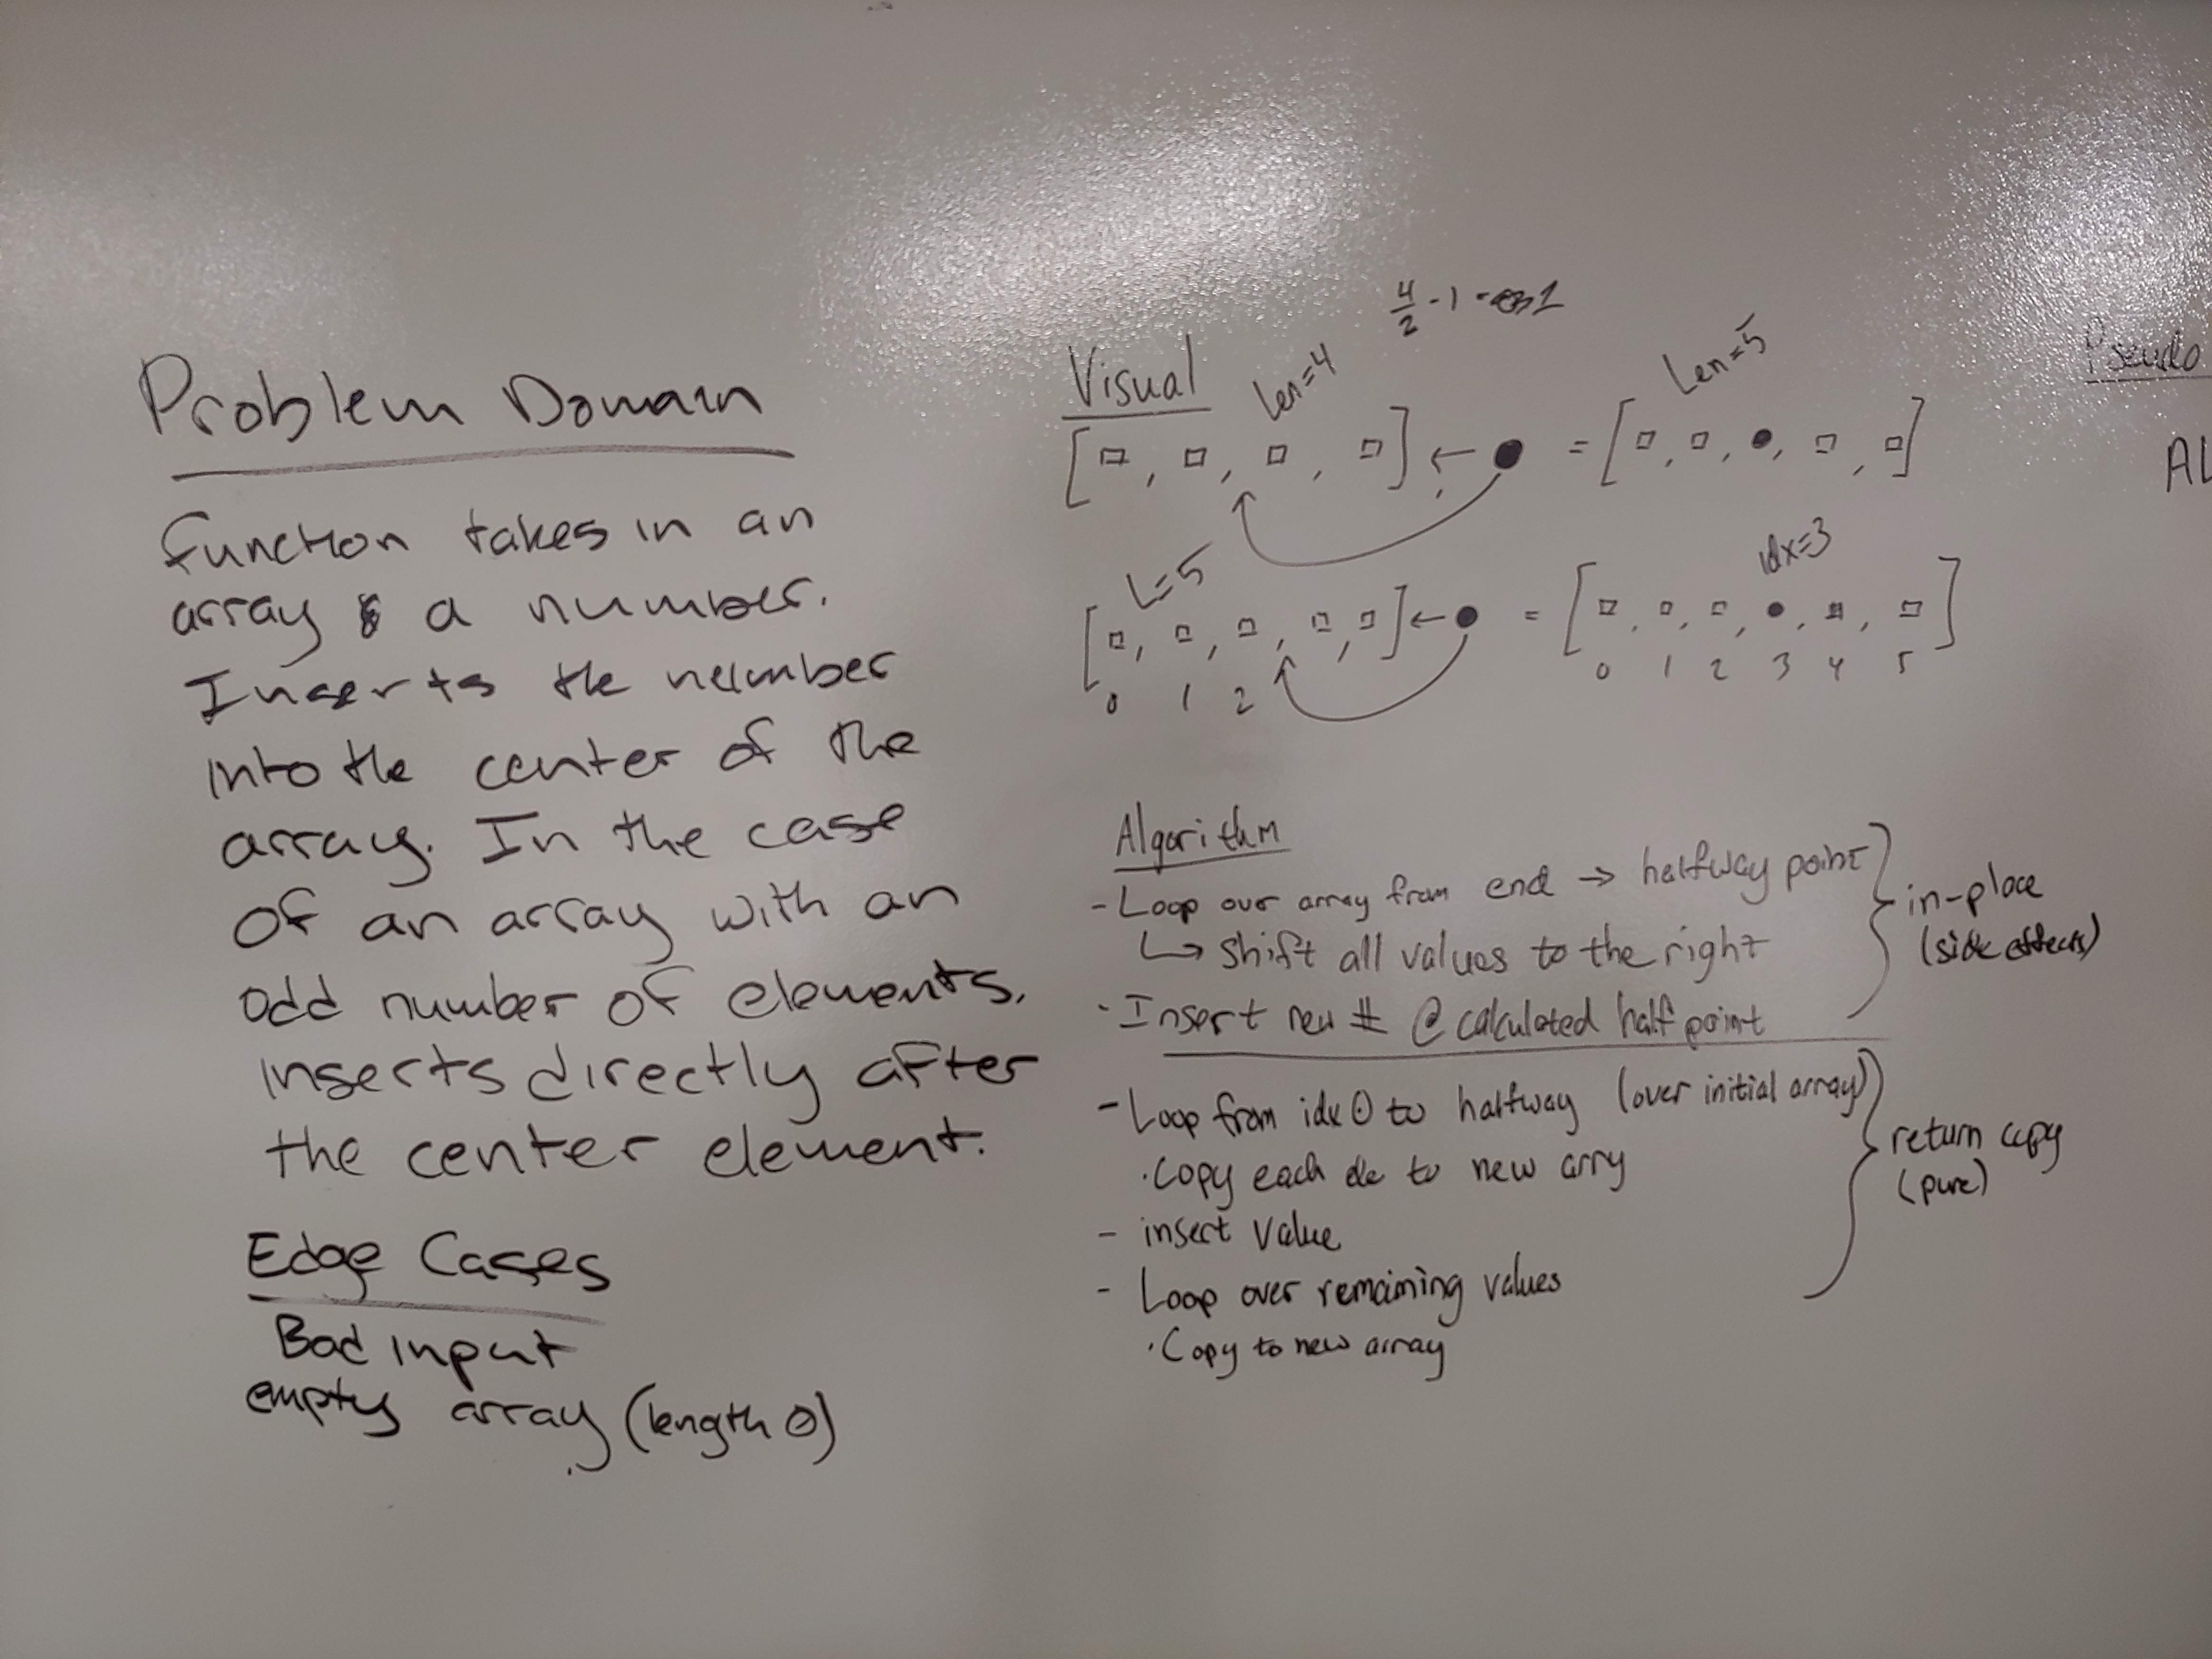 Problem Domain
function takes in an
array & a number.
Inserts the number
into the center of the
array. In the case
of an array with an
odd number of elements,
inserts directly after
the center element.
Edge Cases
Bad input
empty array (length 0)
Visual
4/2 - 1 = 1
Len=4
Len=5
[□, □, □, □] ← ● = [□, □, ●, □, □]
L=5
idx=3
[□, □, □, □, □] ← ● = [□, □, □, ●, □, □]
0 1 2
0 1 2 3 4 5
Algorithm
- Loop over array from end → halfway point
↳ shift all values to the right
· Insert new # @ calculated half point
in-place
(side effects)
- Loop from idx 0 to halfway (over initial array)
· Copy each ele to new arry
- insert value
- Loop over remaining values
· Copy to new array
return copy
(pure)
Pseudo
AL